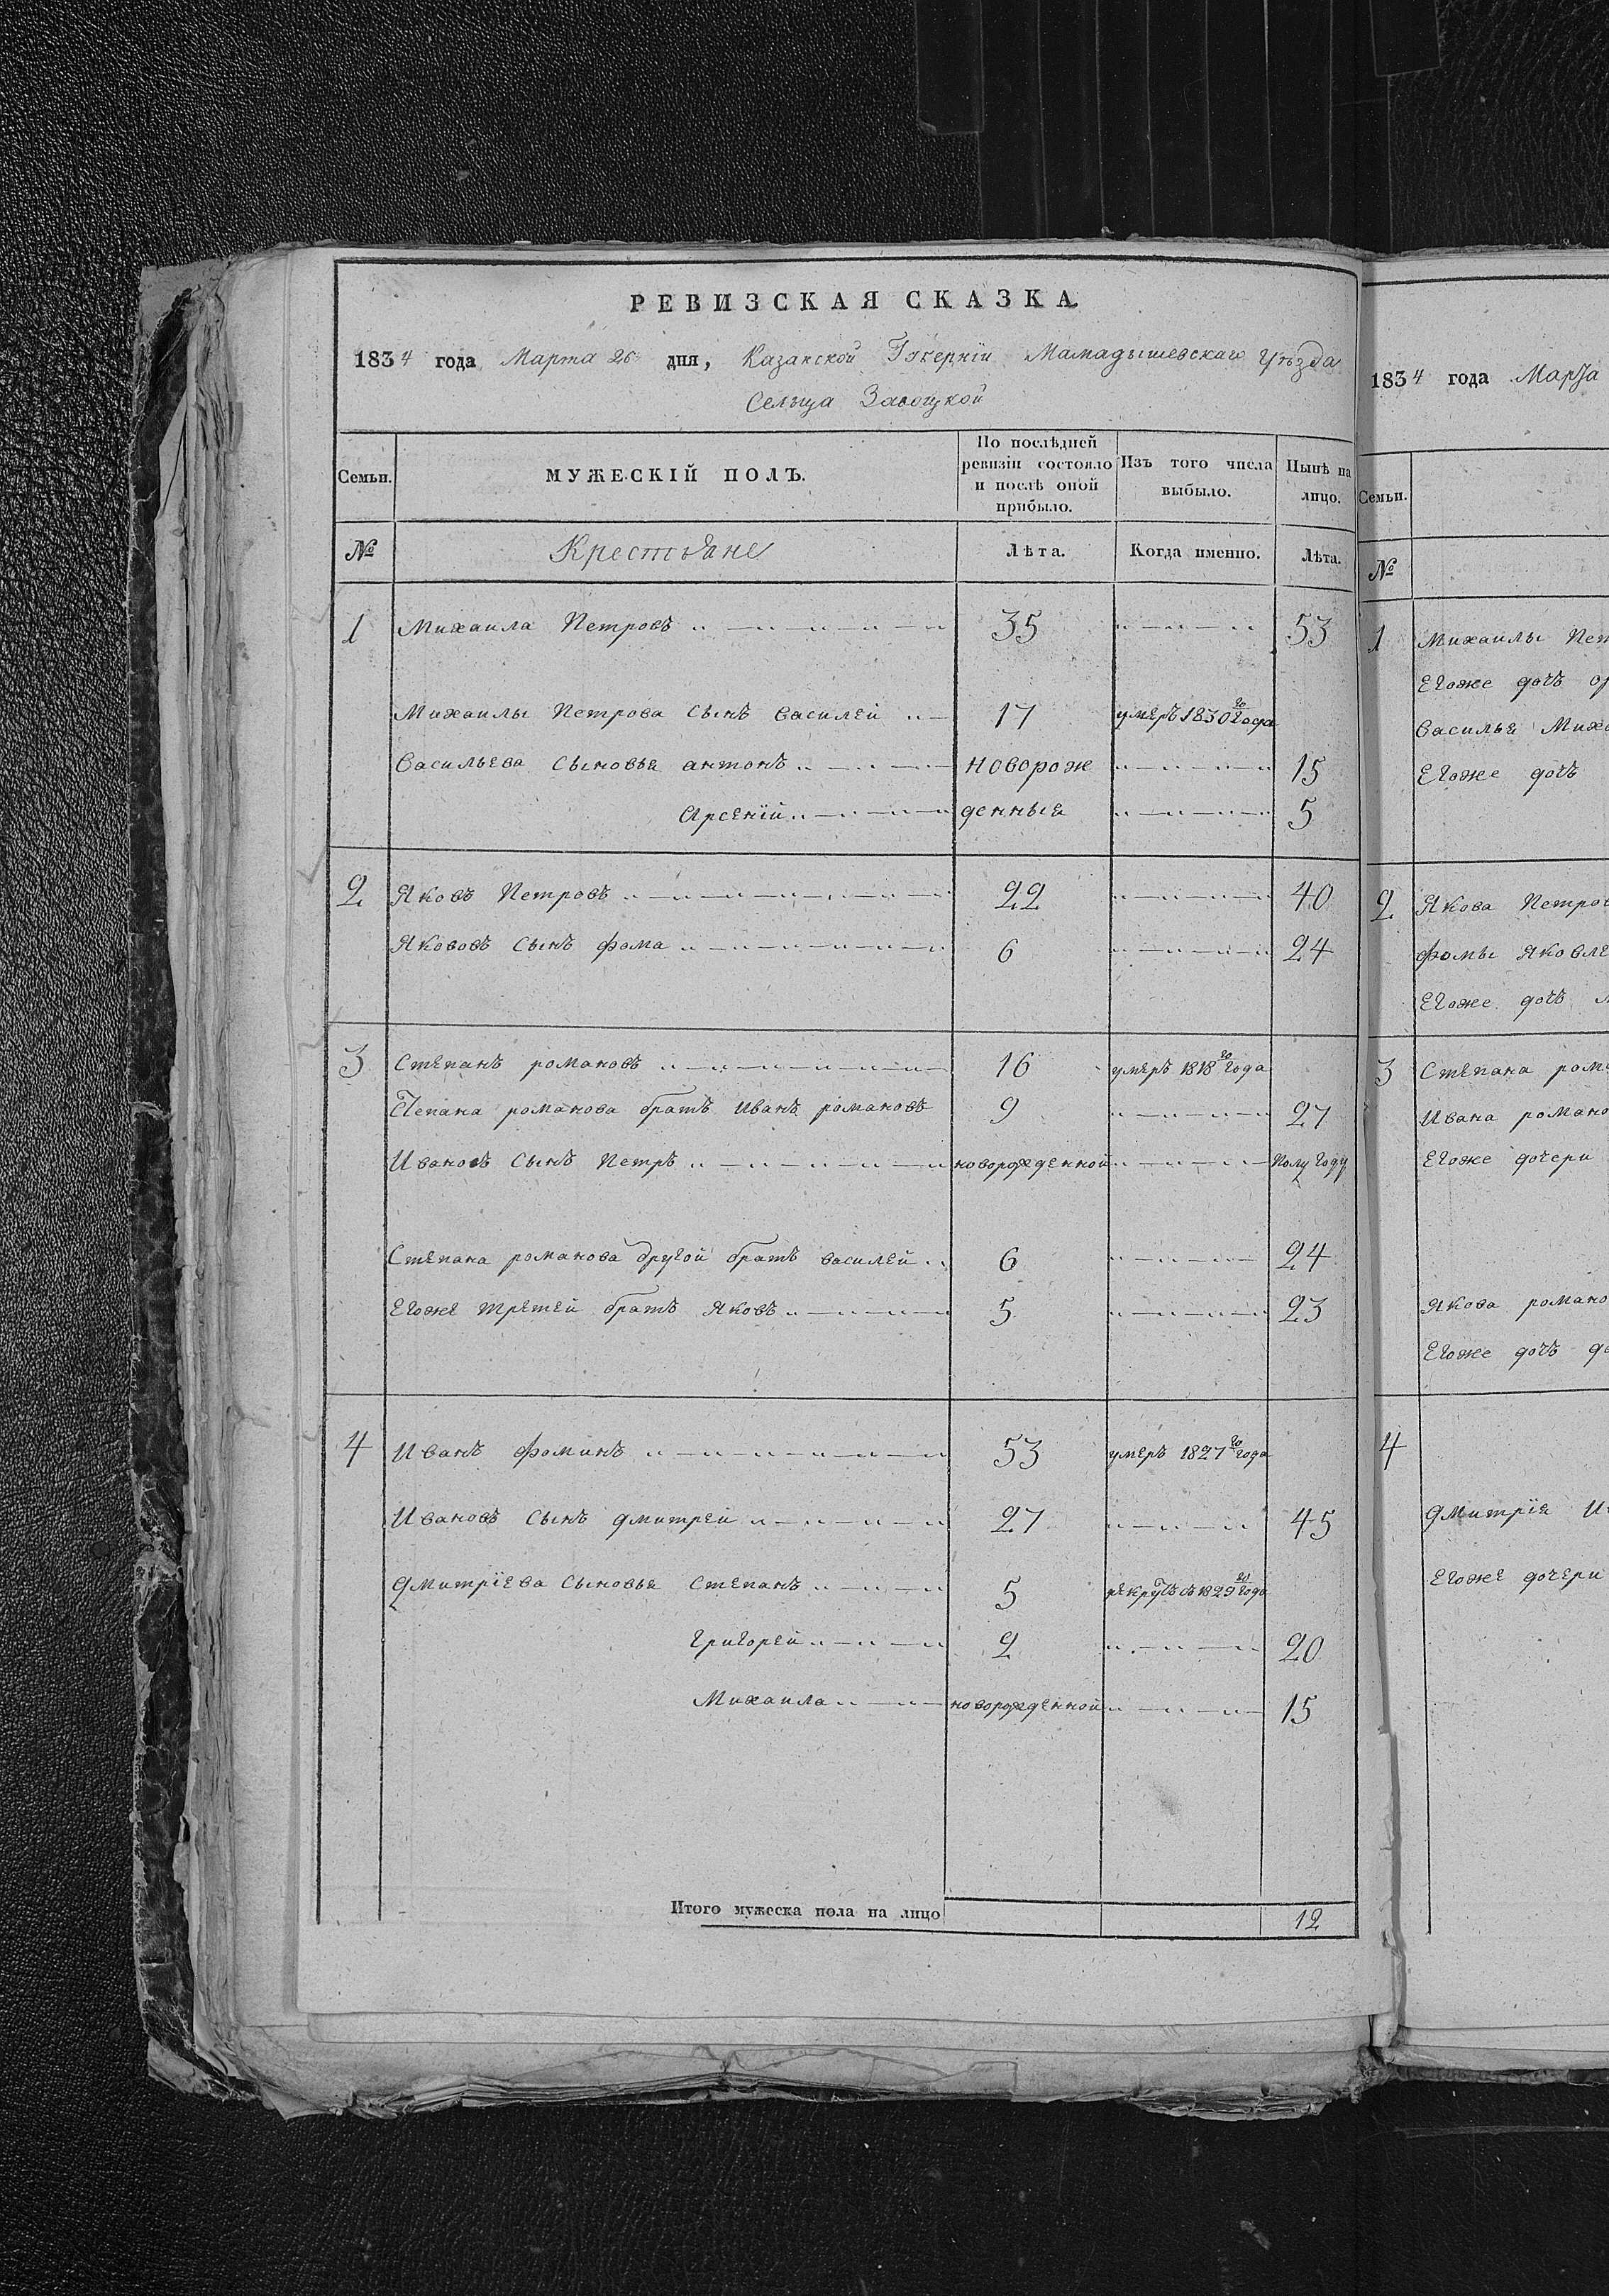 РЕВИЗСКАЯ СКАЗКА
1834 года Марта 26 дня, Казанской Губерніи Мамадышевскаго Уѣзда
Сельца Завоцкой
Семьи. МУЖЕСКІЙ ПОЛЪ. По послѣдней ревизіи состояло и послѣ оной прибыло. Изъ того числа выбыло. Нынѣ на лицо.
№ Крестьяне Лѣта. Когда именно. Лѣта.
1 Михаила Петровъ 35 53
Михаилы Петрова сынъ василей 17 умеръ 1830го года
Васильева сыновья антонъ новорож 15
Арсеній денныя 5
2 Яковъ Петровъ 22 40
Якововъ сынъ фома 6 24
3 Степанъ романовъ 16 умеръ 1818го года
Степана романова братъ иванъ романовъ 9 27
Ивановъ сынъ Петръ новорожденной полу году
Степана романова другой братъ василей 6 24
Егоже третей братъ Яковъ 5 23
4 Иванъ фоминъ 53 умеръ 1827го года
Ивановъ сынъ дмитрей 27 45
дмитріева сыновья степанъ 5 рекрутъ съ 1829го года
григорей 2 20
Михаила новорожденной 15
Итого мужеска пола на лицо 12
1834 года Марта
Семьи.
№
1 Михаилы Пет
Егоже дочь
Василья Миха
Егоже дочь
2 Якова Петров
фомы Яковле
Егоже дочь
3 Степана рома
Ивана романо
Егоже дочери
Якова романо
Егоже дочь
4
дмитрія И
Егоже дочери